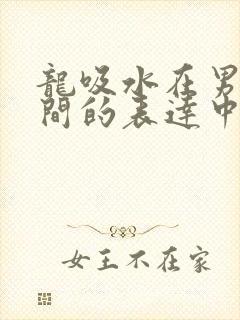 龍吸水在男
間的表達中
女王不在家